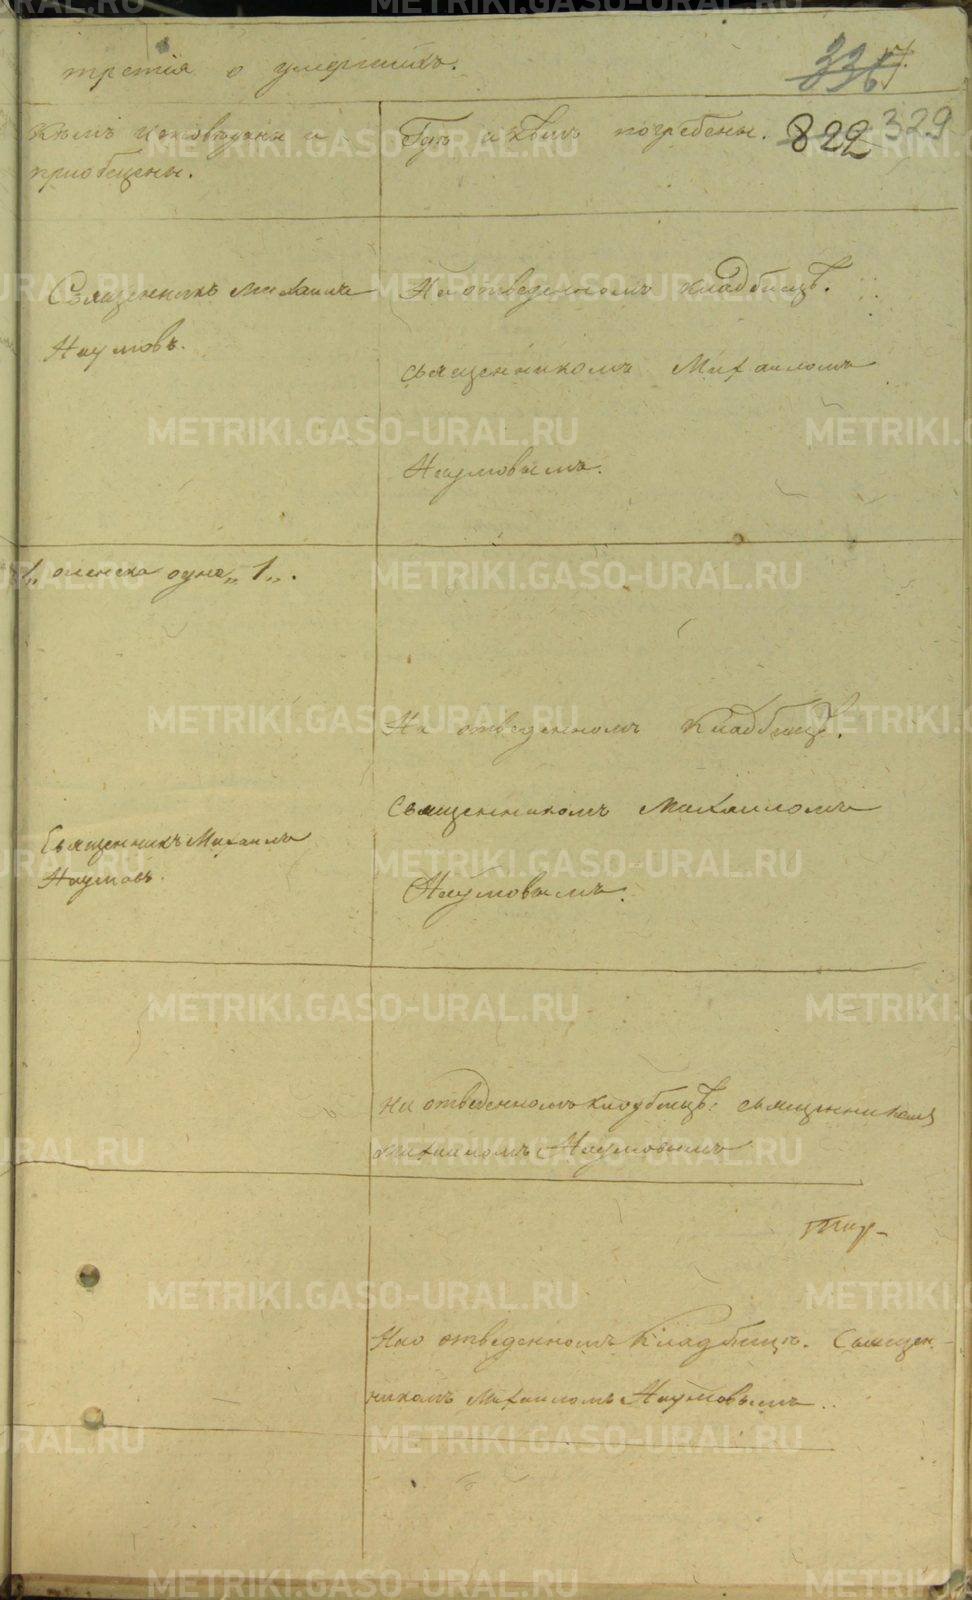 третія о умершихъ.
336
7.
Кѣмъ исповѣданы и
приобщены.
Гдѣ и кѣмъ погребены.
822
329
Священникъ Михаилъ
Наумовъ.
На отведенномъ кладбищѣ.
священникомъ Михаиломъ
Наумовымъ.
1„ женска одна„ 1„.
На отведенномъ Кладбищѣ.
Священникомъ Михаиломъ
Наумовымъ.
Священникъ Михаилъ
Наумовъ.
На отведенномъ кладбищѣ: священникомъ
Михаиломъ Наумовымъ
На отведенномъ Кладбищѣ. Священ-
никомъ Михаиломъ Наумовымъ.
METRIKI.GASO-URAL.RU